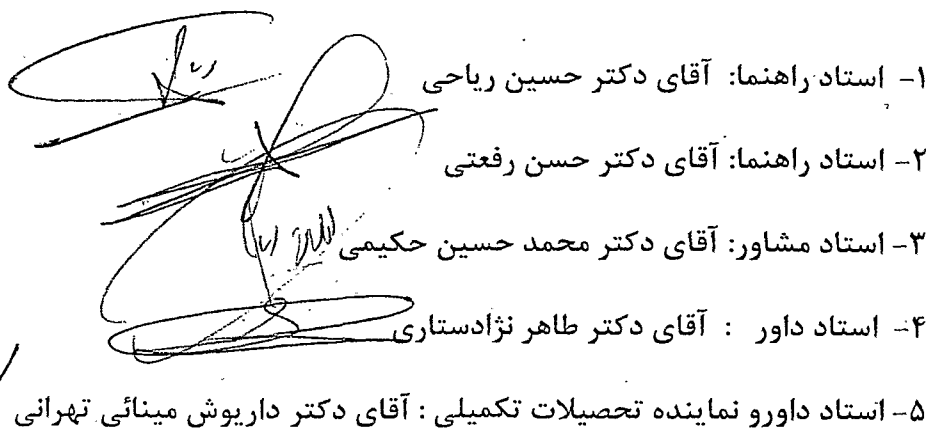 ۱- استاد راهنما: آقای دکتر حسین ریاحی
۲- استاد راهنما: آقای دکتر حسن رفعتی
۳- استاد مشاور: آقای دکتر محمد حسین حکیمی
۴- استاد داور : آقای دکتر طاهر نژادستاری
۵- استاد داورو نماینده تحصیلات تکمیلی : آقای دکتر داریوش مینائی تهرانی